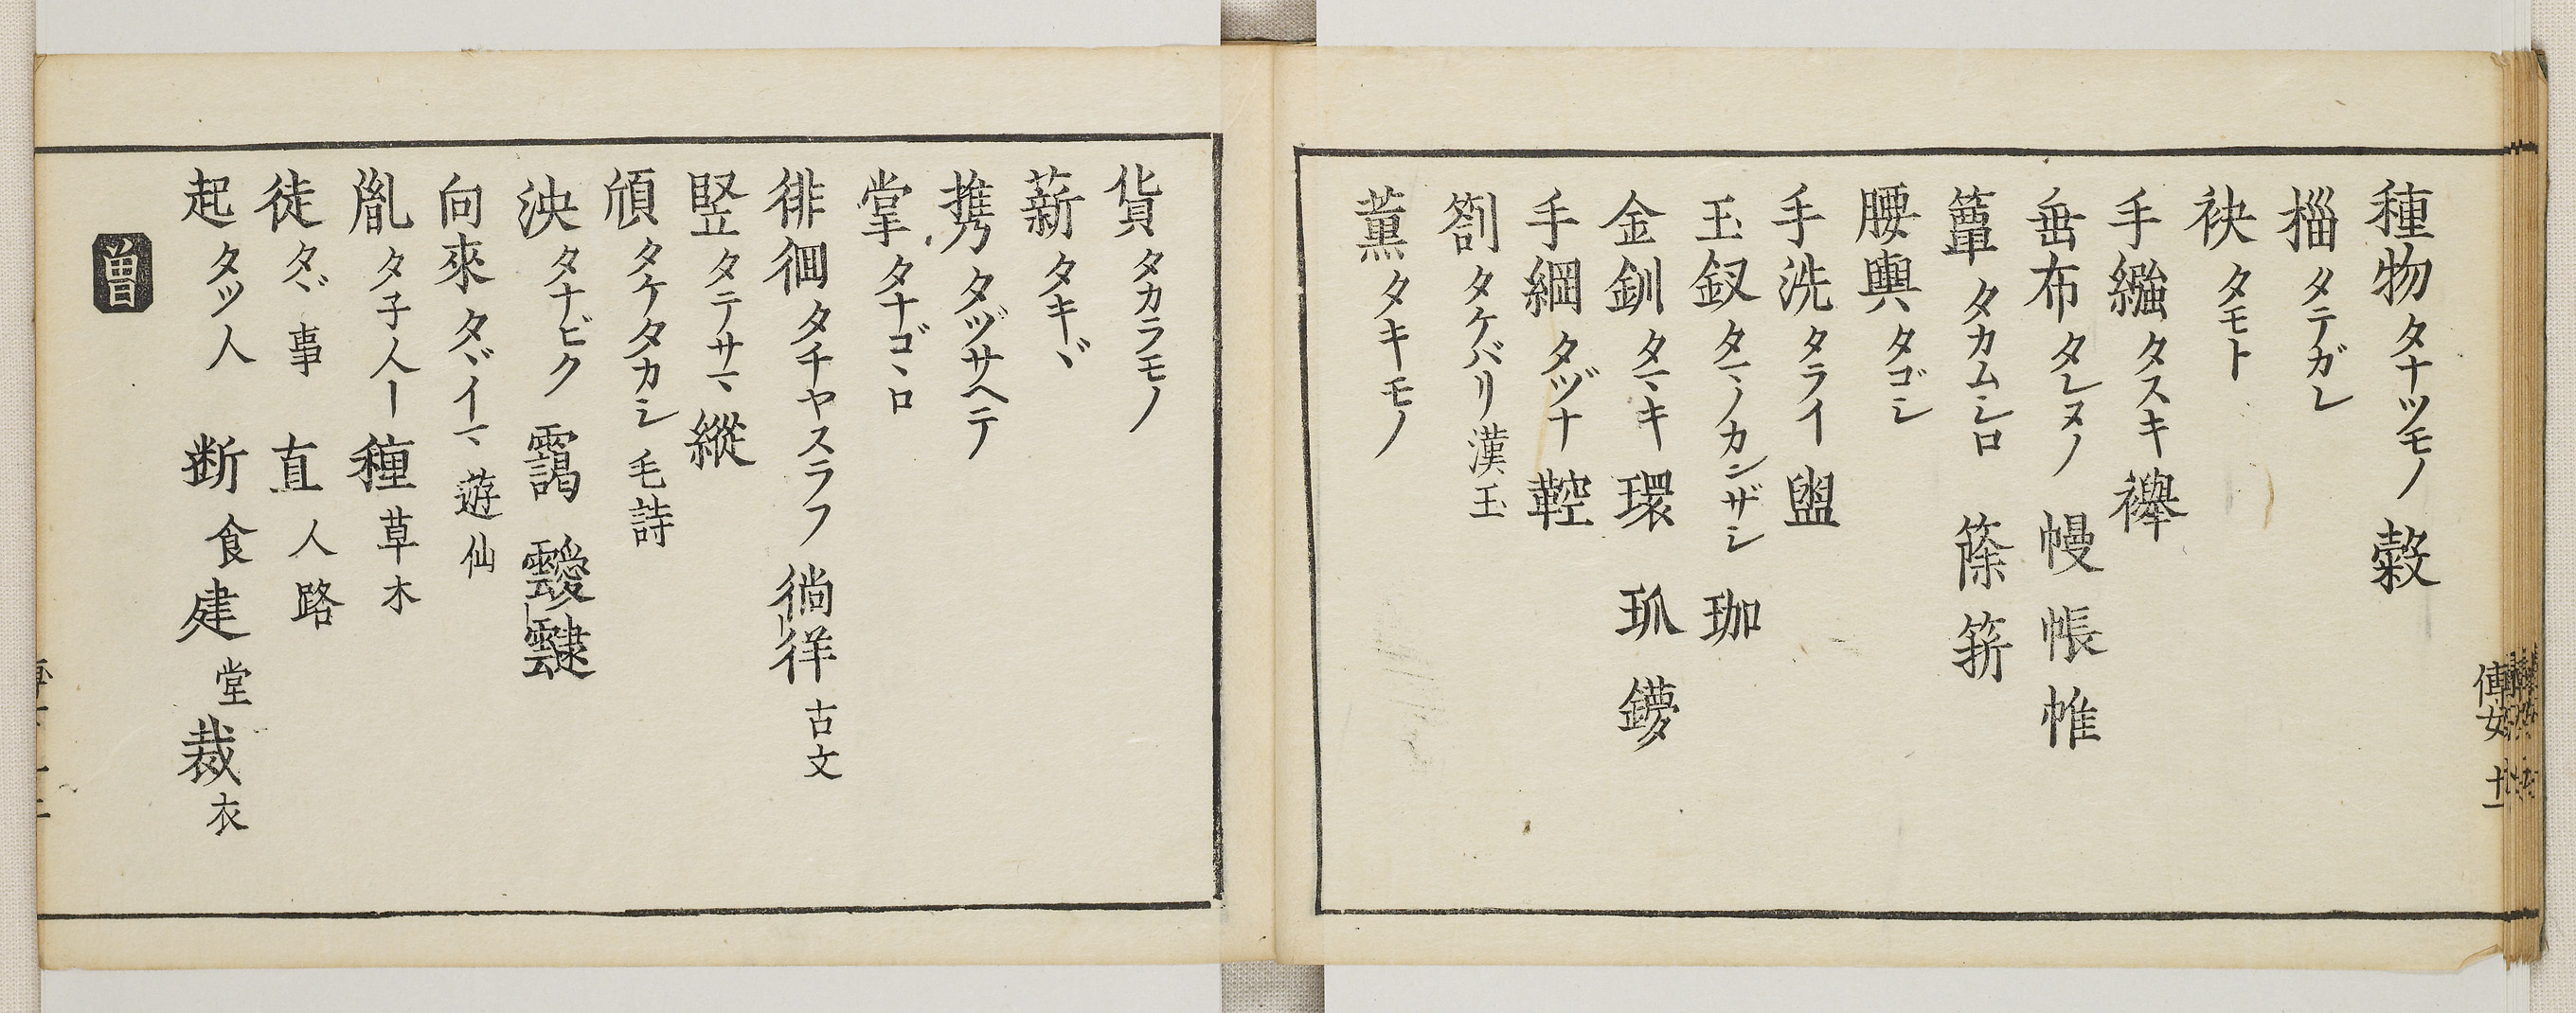 種物タナツモノ 穀
椔タテガレ
袂タモト
手繦タスキ 襷
垂布タレヌノ 幔 帳 帷
簟タカムシロ 篨 䉼
腰輿タゴシ
手洗タライ 盥
玉釵タマノカンザシ 珈
金釧タマキ 環 㺬
手綱タヅナ 鞚
劄タケバリ 漢玉
薫タキモノ
傳女 十一
貨タカラモノ
薪タキヾ
携タヅサヘテ
掌タナゴヽロ
徘徊タチヤスラフ 徜徉 古文
竪タテサマ 縱
頎タケタカシ 毛詩
泱タナビク 靄 靉靆
向來タヾイマ 遊仙
胤タ子人ー 種 草木
徒タヾ 事 直 人路
起タツ 人 断 食 建 堂 裁 衣
曽